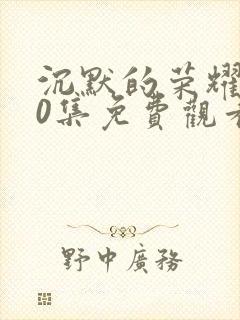 沉默的荣耀
0集免費觀看
野中廣務